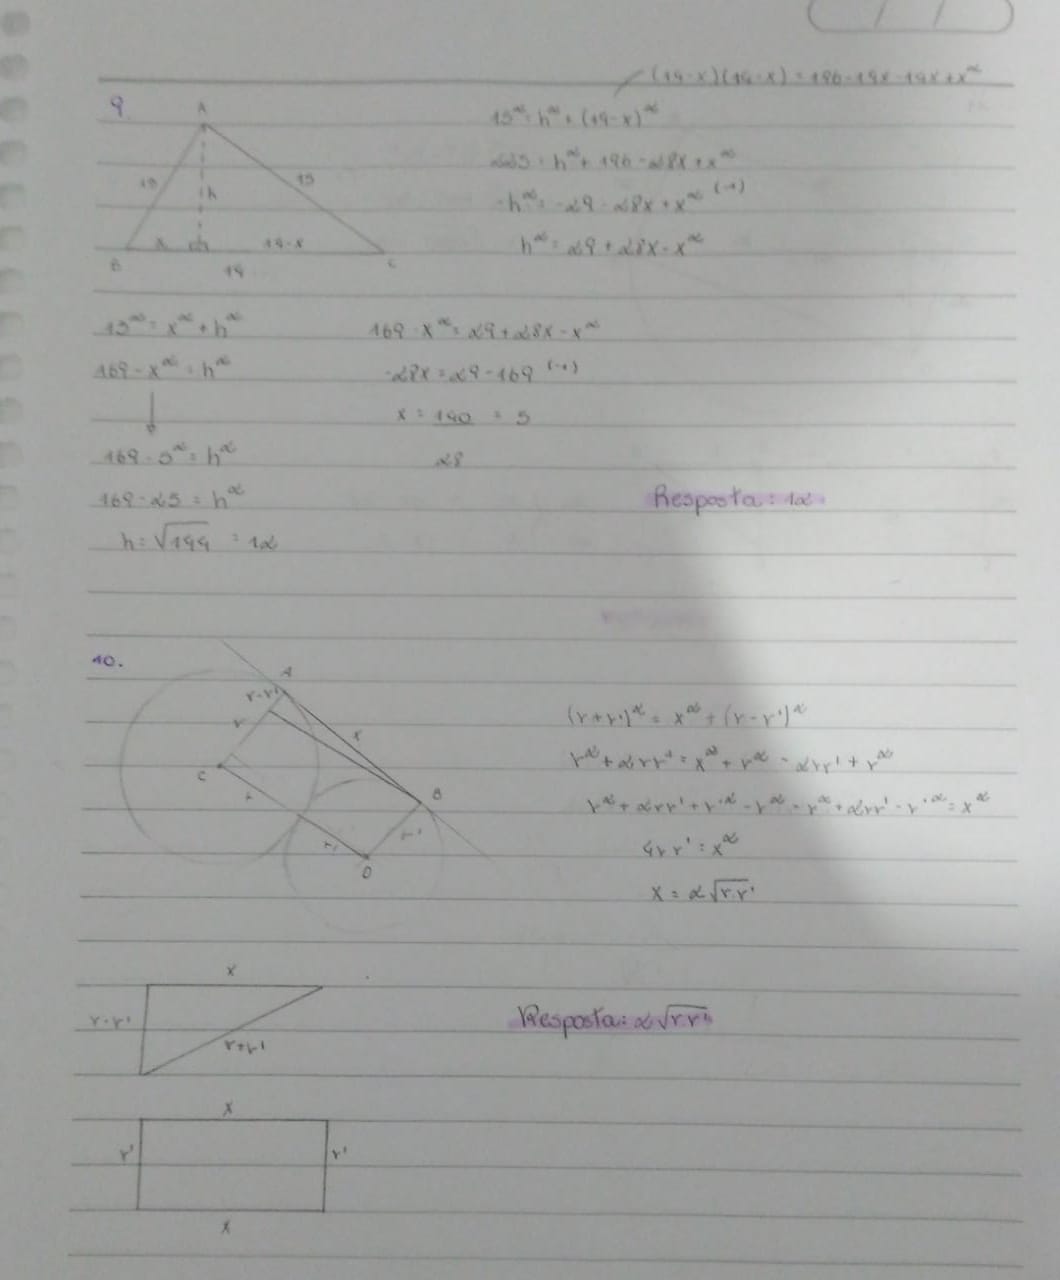 (14-x)(14-x) = 196-14x-14x+x²
9.
A
13
h
15
x
14-x
B
14
C
15² = h² + (14-x)²
225 = h² + 196 - 28x + x²
-h² = -29 - 28x + x² (-1)
h² = 29 + 28x - x²
13² = x² + h²
169 - x² = h²
169 - 5² = h²
169 - 25 = h²
h = √144 = 12
169 - x² = 29 + 28x - x²
-28x = 29 - 169 (-1)
x = 140 = 5
28
Resposta: 12.
10.
A
r-r'
r
x
C
r
B
r'
r'
D
(r+r')² = x² + (r-r')²
r² + 2rr' = x² + r² - 2rr' + r²
r² + 2rr' + r'² - r² - r² + 2rr' - r'² = x²
4rr' = x²
x = 2√r.r'
x
r-r'
r+r'
Resposta: 2√r.r'
x
r'
r'
x